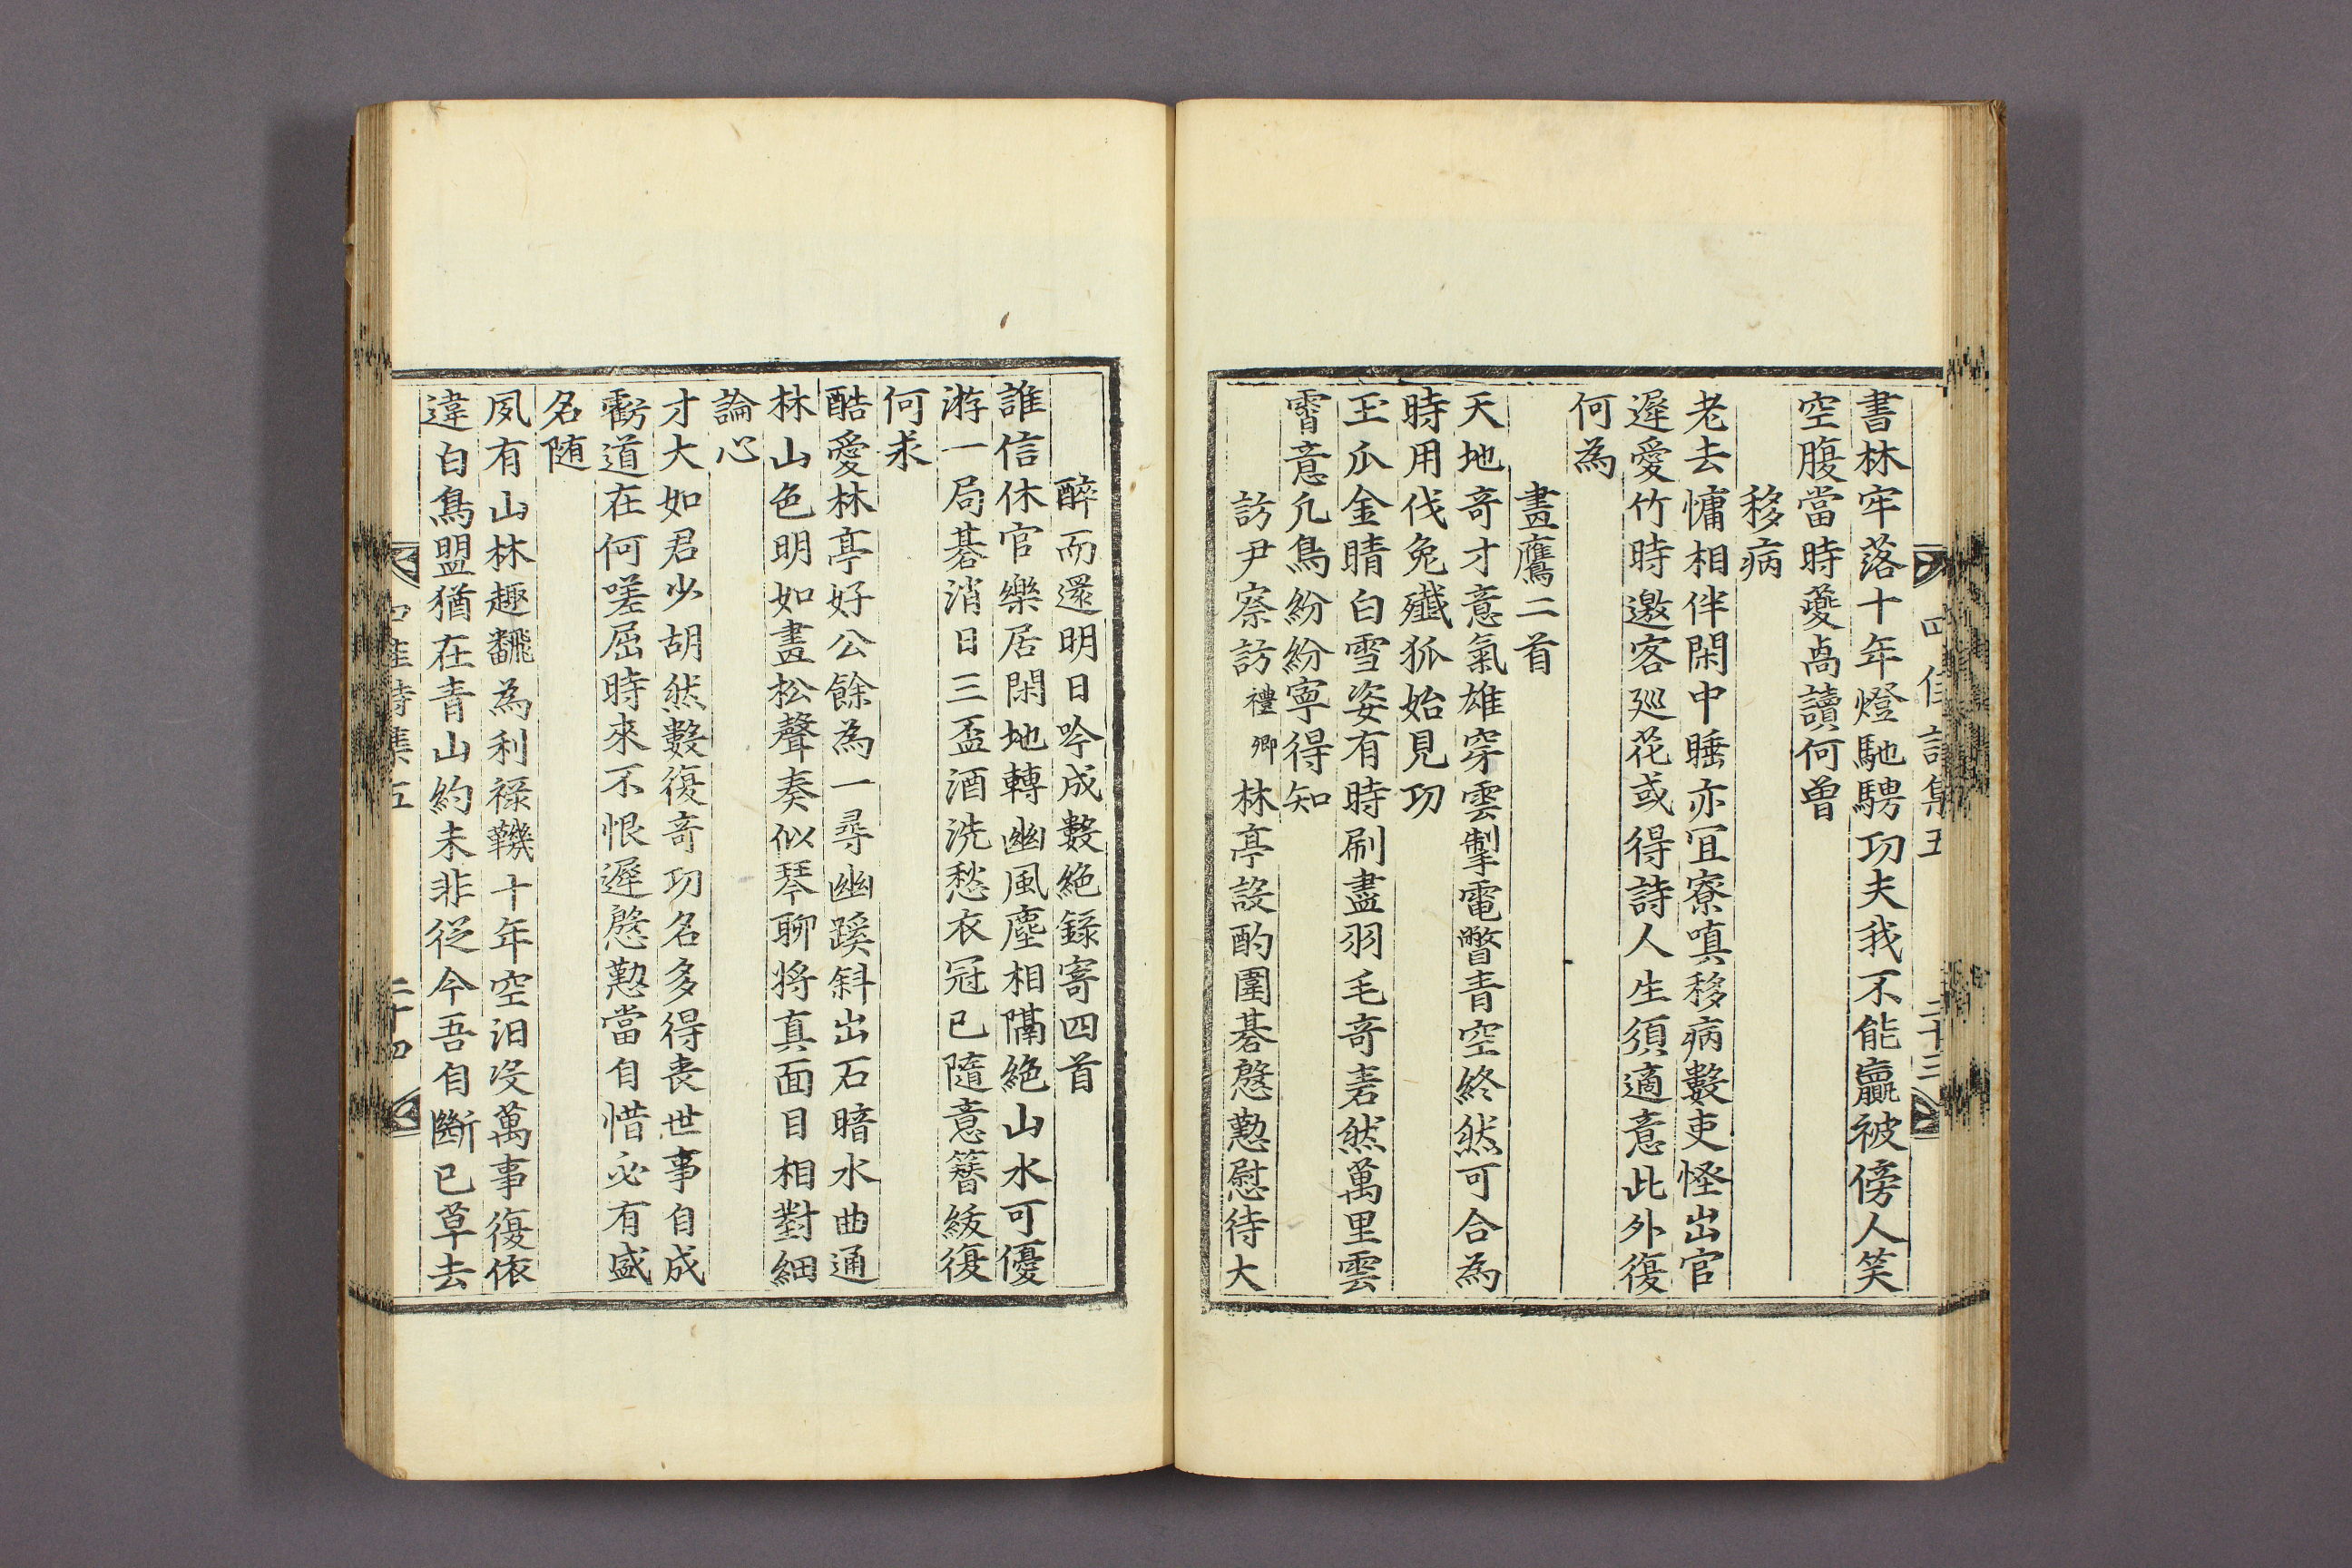 四佳詩集五 二十三
書林牢落十年燈馳騁功夫我不能贏被傍人笑
空腹當時夔卨讀何曽
移病
老去慵相伴閑中睡亦冝寮嗔移病數吏怪出官
遲愛竹時邀客廵花或得詩人生須適意此外復
何為
畫鷹二首
天地竒才意氣雄穿雲掣電瞥青空終然可合為
時用伐兔殲狐始見功
玉爪金睛白雪姿有時刷盡羽毛竒砉然萬里雲
霄意凡鳥紛紛寧得知
訪尹察訪禮卿林亭設酌圍碁慇懃慰待大
醉而還明日吟成數絶錄寄四首
誰信休官樂居閑地轉幽風塵相隔絶山水可優
游一局碁消日三盃酒洗愁衣冠已隨意簪紱復
何求
酷愛林亭好公餘為一尋幽蹊斜出石暗水曲通
林山色明如畫松聲奏似琴聊将真面目相對細
論心
才大如君少胡然數復竒功名多得喪世事自成
虧道在何嗟屈時來不恨遲慇懃當自惜必有盛
名随
夙有山林趣飜為利祿鞿十年空汨沒萬事復依
違白鳥盟猶在青山約未非從今吾自斷已草去
四佳詩集五 二十四